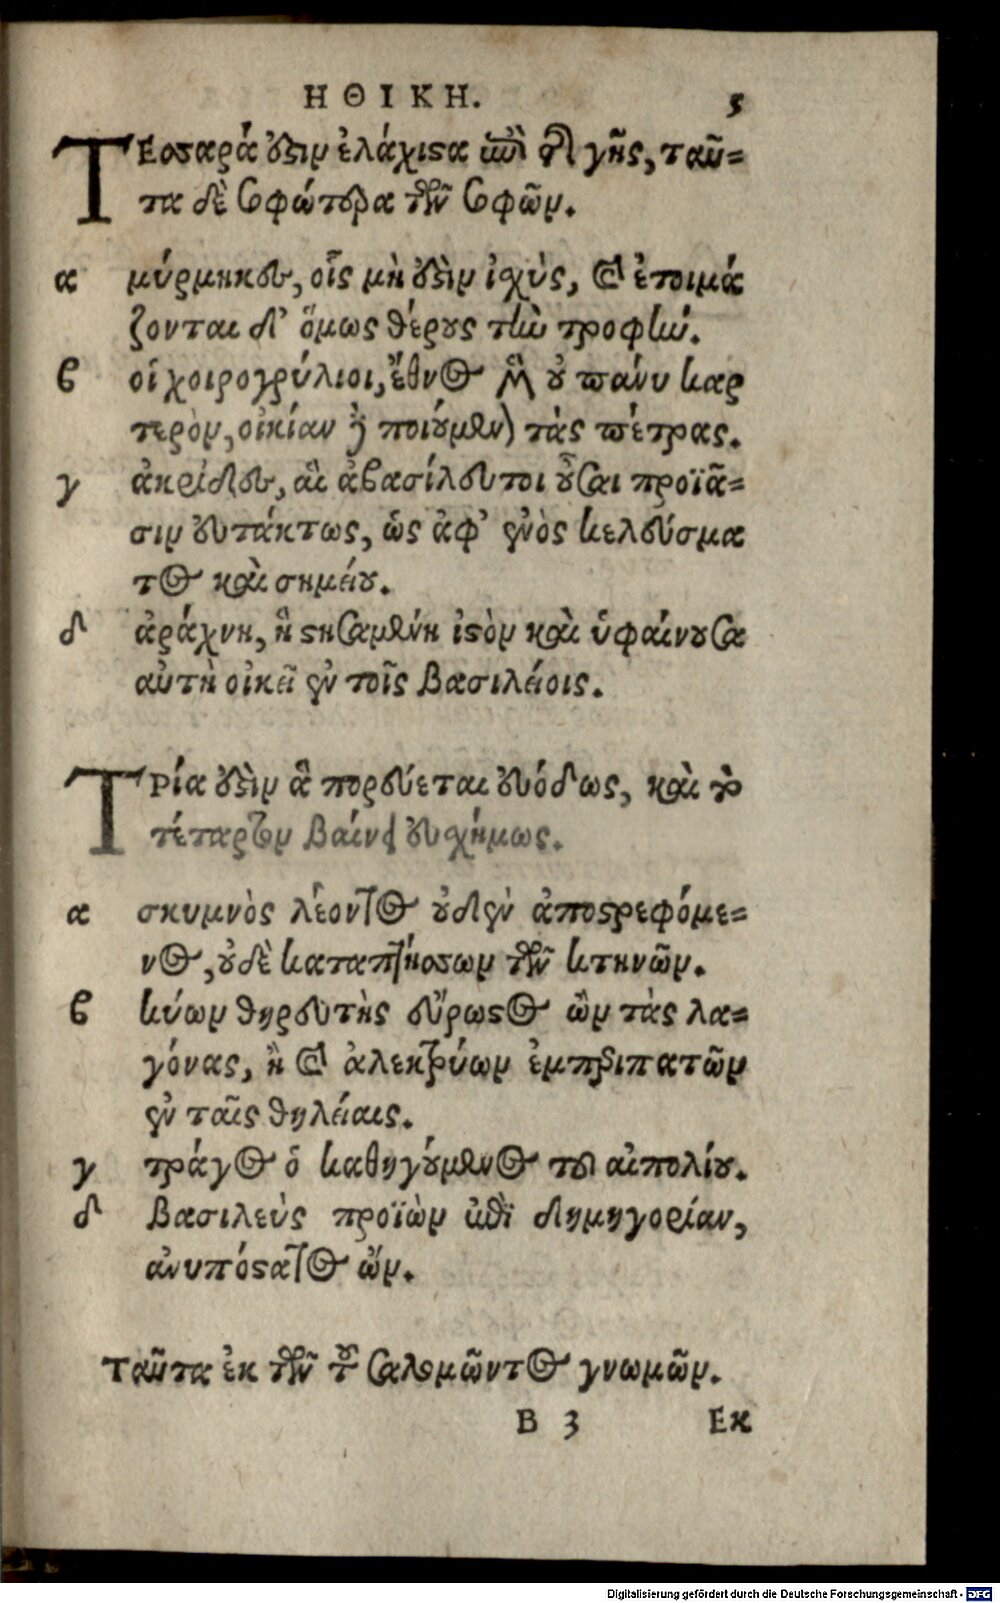 ΗΘΙΚΗ. 5
ΤΕσσαρά ὅξιν ἐλάχιστα ἐπὶ τῆς γῆς, ταῦ-
τα δὲ σοφώτερα τῶν σοφῶν.
α μύρμηκες, οἷς μὴ ὅξιν ἰχὺς, καὶ ἑτοιμά
ζονται δ' ὅμως θέρους τὴν τροφήν.
β οἱ χοιρογρύλιοι, ἔθνος μὲν οὐ πάνυ καρ
τερὸν, οἰκίαν δὲ ποιούμενοι τὰς πέτρας.
γ ἀκρίδες, αἳ ἀβασίλευτοι οὖσαι προϊᾶ-
σιν εὐτάκτως, ὡς ἀφ' ἑνὸς κελεύσμα
τος καὶ σημείου.
δ ἀράχνη, ἣ στησαμένη ἱστὸν καὶ ὑφαίνουσα
αὐτὴ οἰκεῖ ἐν τοῖς βασιλείοις.
ΤΡία ὅξιν ἃ πορεύεται εὐόδως, καὶ τὸ
τέταρτον βαίνει εὐχήμως.
α σκυμνὸς λέοντος οὐδὲν ἀποστρεφόμε-
νος, οὐδὲ καταπτήσσων τῶν κτηνῶν.
β κύων θηρευτὴς εὔρωστος ὢν τὰς λα-
γόνας, ἢ καὶ ἀλεκτρύων ἐμπεριπατῶν
ἐν ταῖς θηλείαις.
γ τράγος ὁ καθηγούμενος τοῦ αἰπολίου.
δ βασιλεὺς προϊὼν ἐπὶ δημηγορίαν,
ἀνυπόστατος ὤν.
Ταῦτα ἐκ τῶν τοῦ Σαλομῶντος γνωμῶν.
B 3 Εκ
Digitalisierung gefördert durch die Deutsche Forschungsgemeinschaft - DFG